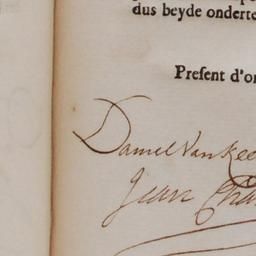 dus beyde onderte
Present d'on
Daniel Van Kee
Jean Cha